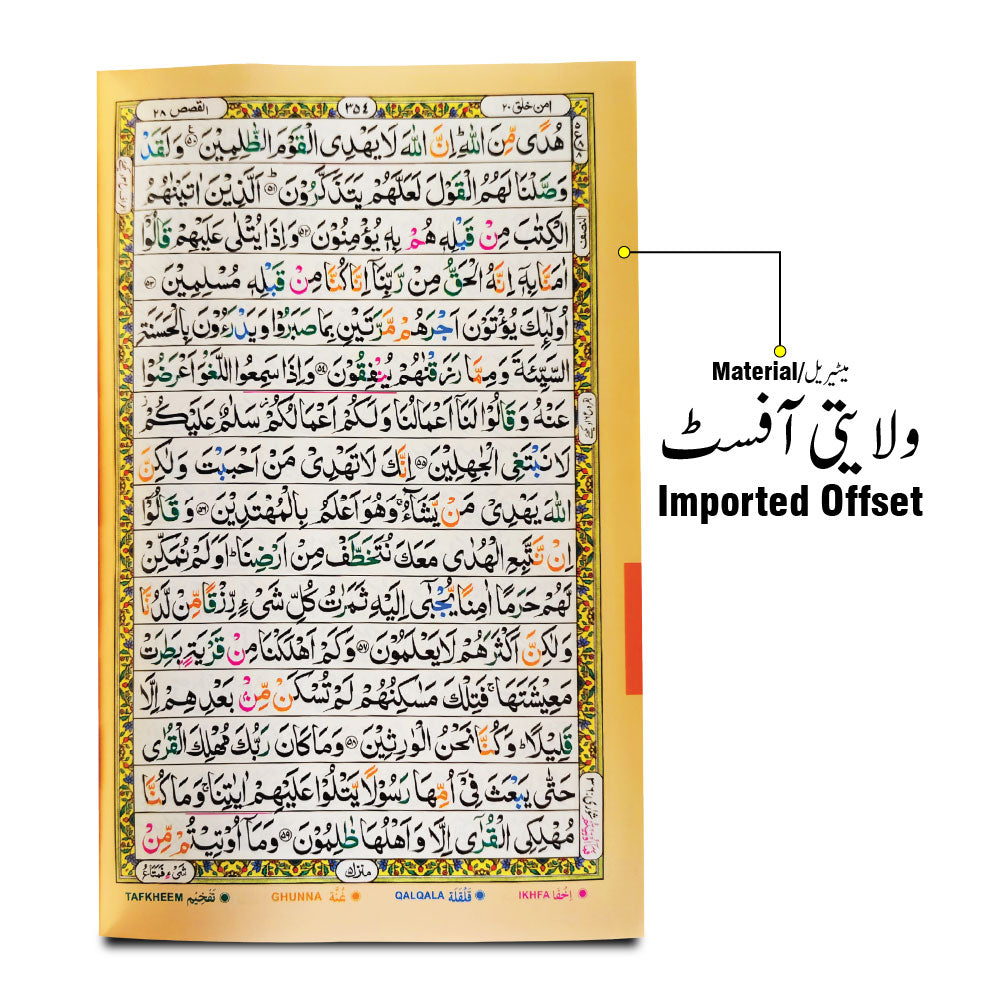 امن خلق ۲۰
۳۵۴
القصص ۲۸
هُدًى مِّنَ اللّٰهِ ؕ اِنَّ اللّٰهَ لَا يَهْدِى الْقَوْمَ الظّٰلِمِيْنَ ۵۰ وَلَقَدْ
وَصَّلْنَا لَهُمُ الْقَوْلَ لَعَلَّهُمْ يَتَذَكَّرُوْنَ ؕ ۵۱ اَلَّذِيْنَ اٰتَيْنٰهُمُ
الْكِتٰبَ مِنْ قَبْلِهٖ هُمْ بِهٖ يُؤْمِنُوْنَ ۵۲ وَاِذَا يُتْلٰى عَلَيْهِمْ قَالُوْٓا
اٰمَنَّا بِهٖٓ اِنَّهُ الْحَقُّ مِنْ رَّبِّنَآ اِنَّا كُنَّا مِنْ قَبْلِهٖ مُسْلِمِيْنَ ۵۳
اُولٰٓئِكَ يُؤْتَوْنَ اَجْرَهُمْ مَّرَّتَيْنِ بِمَا صَبَرُوْا وَيَدْرَءُوْنَ بِالْحَسَنَةِ
السَّيِّئَةَ وَمِمَّا رَزَقْنٰهُمْ يُنْفِقُوْنَ ۵۴ وَاِذَا سَمِعُوا اللَّغْوَ اَعْرَضُوْا
عَنْهُ وَقَالُوْا لَنَآ اَعْمَالُنَا وَلَكُمْ اَعْمَالُكُمْ سَلٰمٌ عَلَيْكُمْ
لَا نَبْتَغِى الْجٰهِلِيْنَ ۵۵ اِنَّكَ لَا تَهْدِىْ مَنْ اَحْبَبْتَ وَلٰكِنَّ
اللّٰهَ يَهْدِىْ مَنْ يَّشَآءُ ۚ وَهُوَ اَعْلَمُ بِالْمُهْتَدِيْنَ ۵۶ وَقَالُوْٓا
اِنْ نَّتَّبِعِ الْهُدٰى مَعَكَ نُتَخَطَّفْ مِنْ اَرْضِنَا ؕ اَوَلَمْ نُمَكِّنْ
لَّهُمْ حَرَمًا اٰمِنًا يُّجْبٰٓى اِلَيْهِ ثَمَرٰتُ كُلِّ شَىْءٍ رِّزْقًا مِّنْ لَّدُنَّا
وَلٰكِنَّ اَكْثَرَهُمْ لَا يَعْلَمُوْنَ ۵۷ وَكَمْ اَهْلَكْنَا مِنْ قَرْيَةٍۢ بَطِرَتْ
مَعِيْشَتَهَا ۚ فَتِلْكَ مَسٰكِنُهُمْ لَمْ تُسْكَنْ مِّنْۢ بَعْدِهِمْ اِلَّا
قَلِيْلًا ؕ وَكُنَّا نَحْنُ الْوٰرِثِيْنَ ۵۸ وَمَا كَانَ رَبُّكَ مُهْلِكَ الْقُرٰى
حَتّٰى يَبْعَثَ فِىْٓ اُمِّهَا رَسُوْلًا يَّتْلُوْا عَلَيْهِمْ اٰيٰتِنَا ۚ وَمَا كُنَّا
مُهْلِكِى الْقُرٰٓى اِلَّا وَاَهْلُهَا ظٰلِمُوْنَ ۵۹ وَمَآ اُوْتِيْتُمْ مِّنْ
النصف
منزل ۵
شَىْءٍ فَمَتَاعُ
IKHFA اِخْفَا
QALQALA قَلْقَلَة
GHUNNA غُنَّة
TAFKHEEM تَفْخِيْم
Material/میٹیریل
ولایتی آفسٹ
Imported Offset